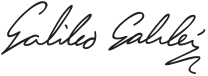 Galileo Galilei